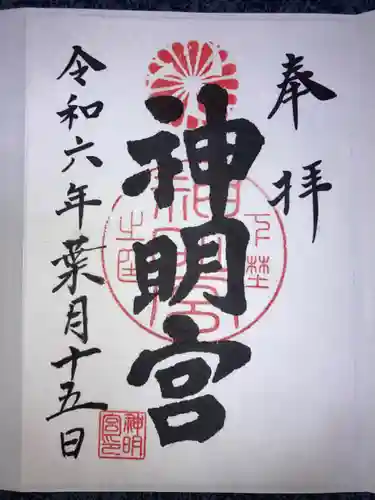 奉拝
神明宮
令和六年葉月十五日
神明宮印